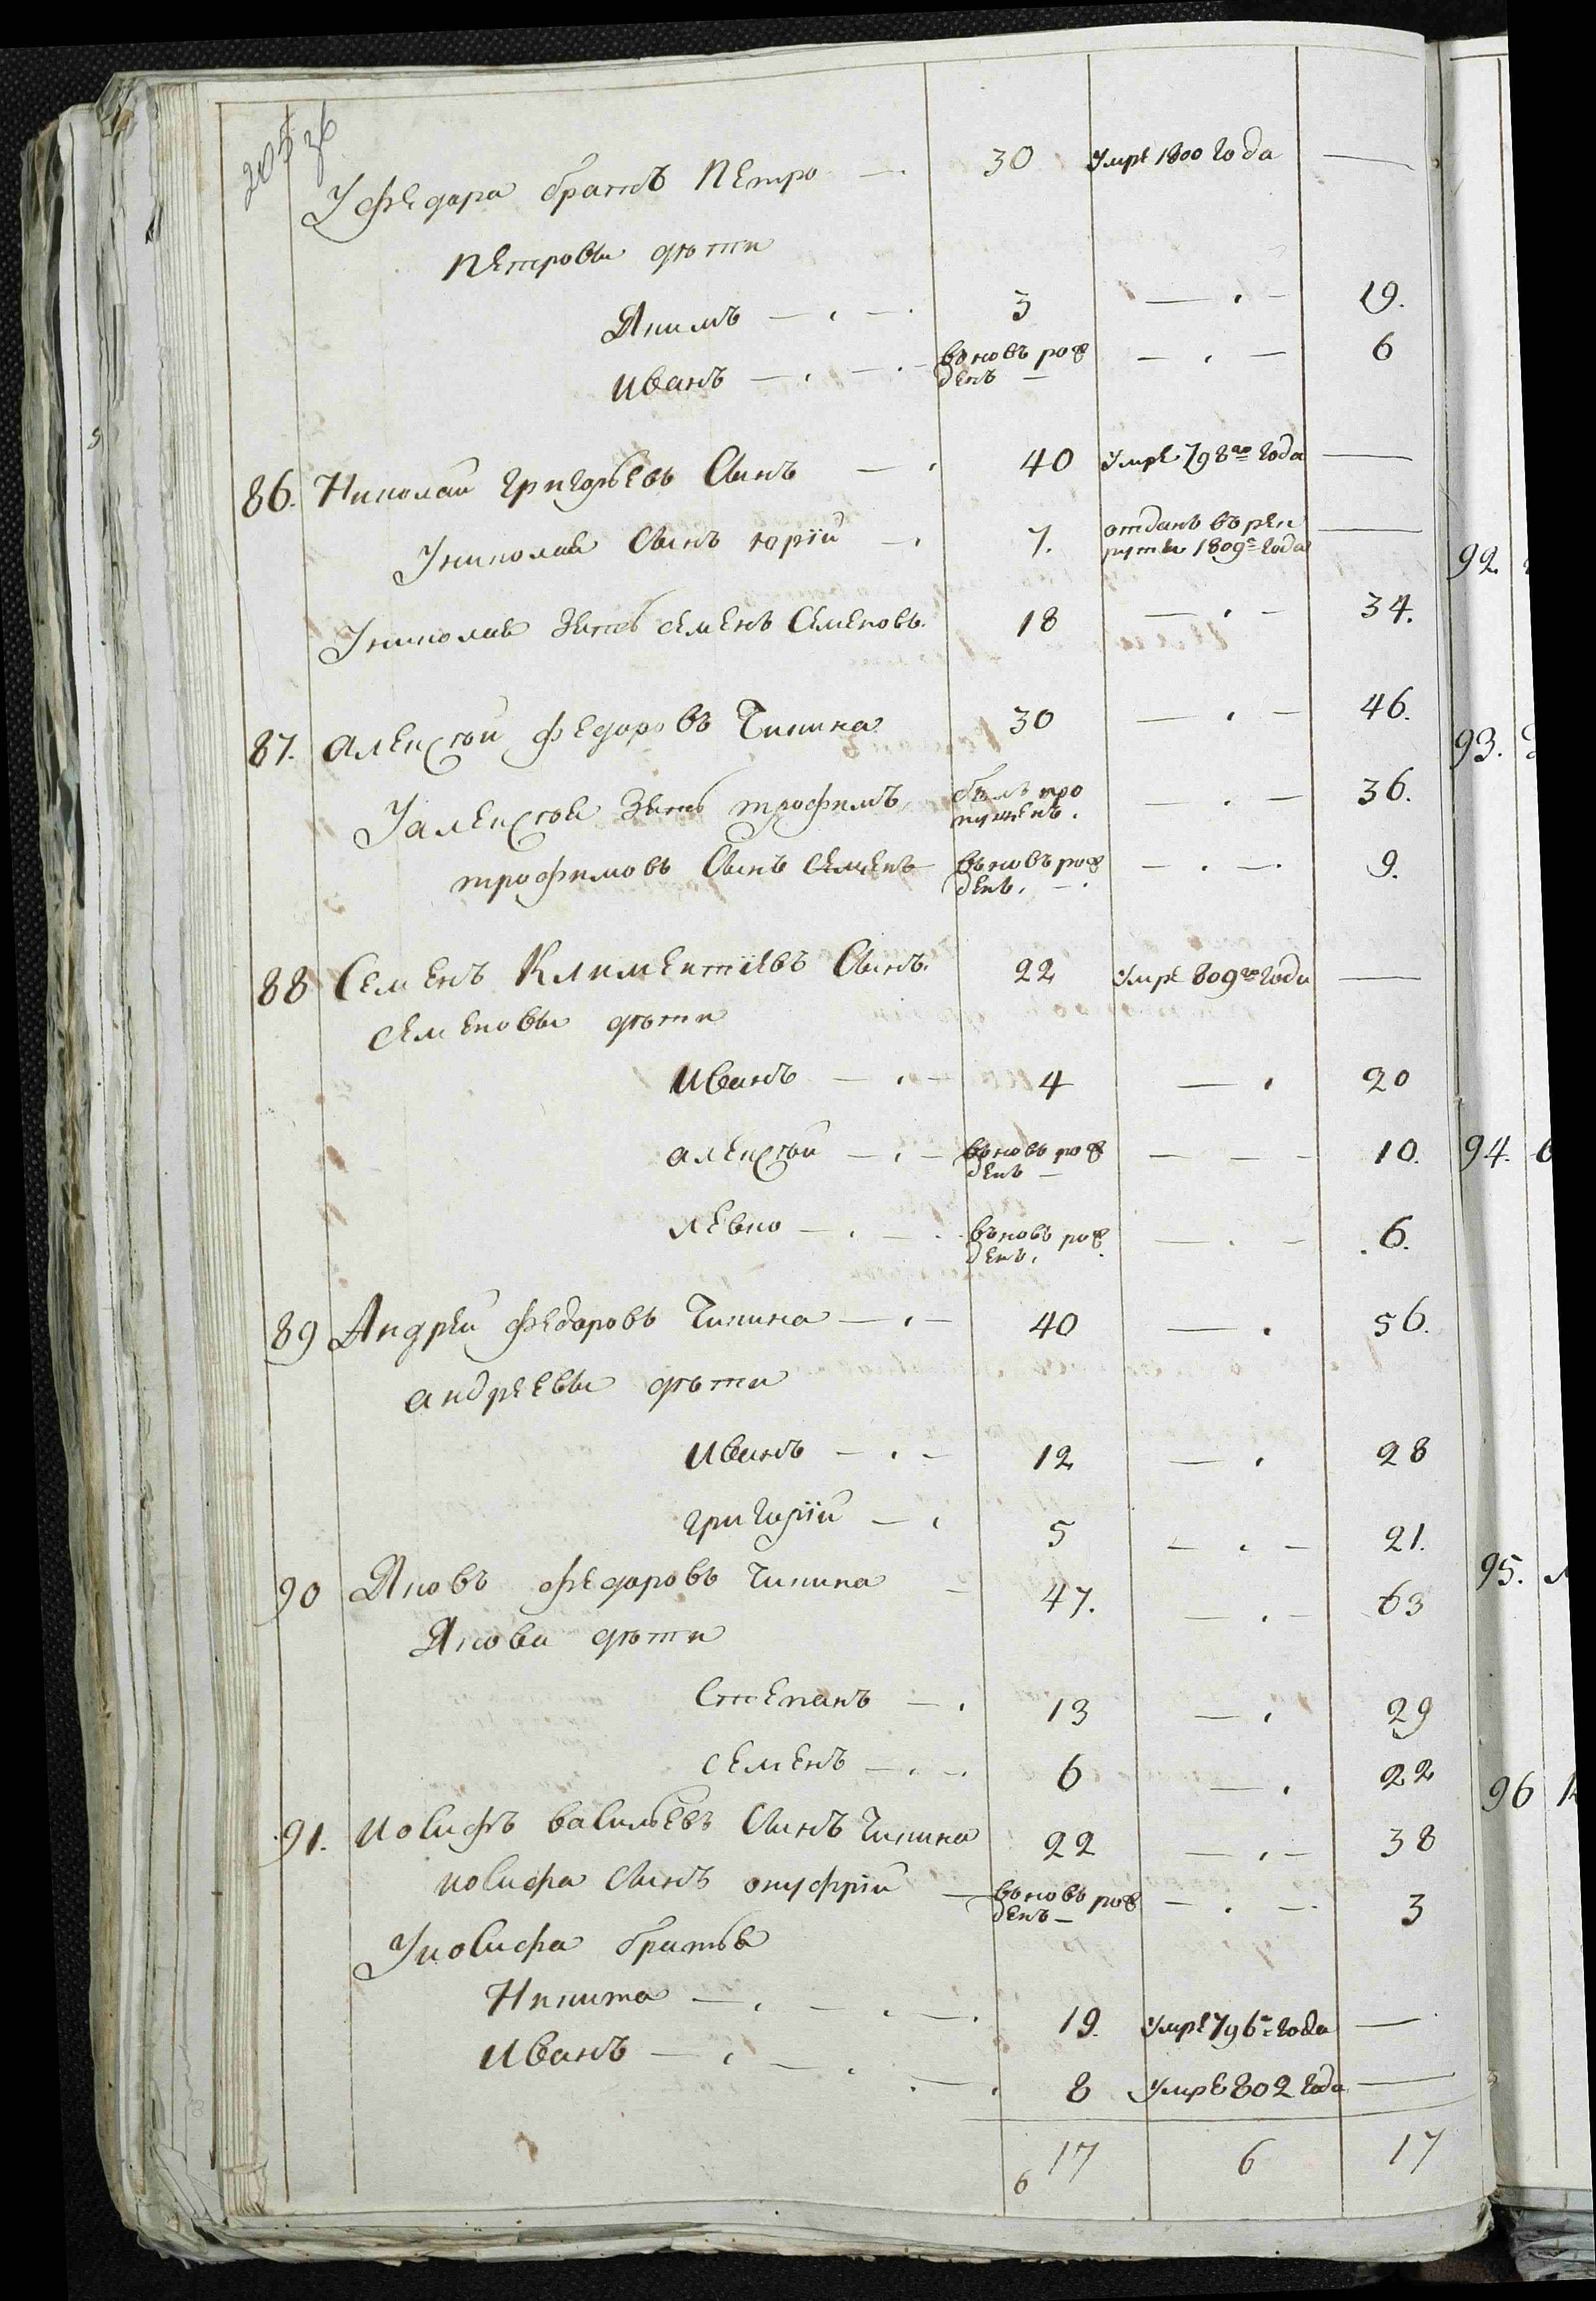 205 36
У Федора братъ Петро — 30 умре 1800 года —
Петровы дѣти
Якимъ — 3 — 19.
Иванъ — вновь рожденъ — 6
86. Николай Григорьевъ Сынъ — 40 умре 798го года —
У Николая Сынъ Юрій — 7. отданъ въ рекруты 1809го года —
У Николая Зять Семенъ Семеновъ. 18 — 34.
87. Алексѣй Федоровъ Чипина 30 — 46.
У Алексѣя Зять Трофимъ былъ пропущенъ. — 36.
Трофимовъ Сынъ Семенъ вновь рожденъ. — 9.
88 Семенъ Климентіевъ Сынъ. 22 умре 809го года —
Семеновы дѣти
Иванъ — 4 — 20
Алексѣй — вновь рожденъ — 10.
Левко — вновь рожденъ. — 6.
89 Андрей Федоровъ Чипина — 40 — 56.
Андреевы дѣти
Иванъ — 12 — 28
Григорій — 5 — 21.
90 Яковъ Федоровъ Чипина — 47. — 63
Якова дѣти
Степанъ — 13 — 29
Семенъ — 6 — 22
91. Иосифъ Васильевъ Сынъ Чипина 22 — 38
Иосифа Сынъ Онуфрій — вновь рожденъ — 3
У Иосифа братья
Никита — 19. умре 796го года —
Иванъ — 8 умре 802 года —
6 17 6 17
92.
93.
94.
95.
96